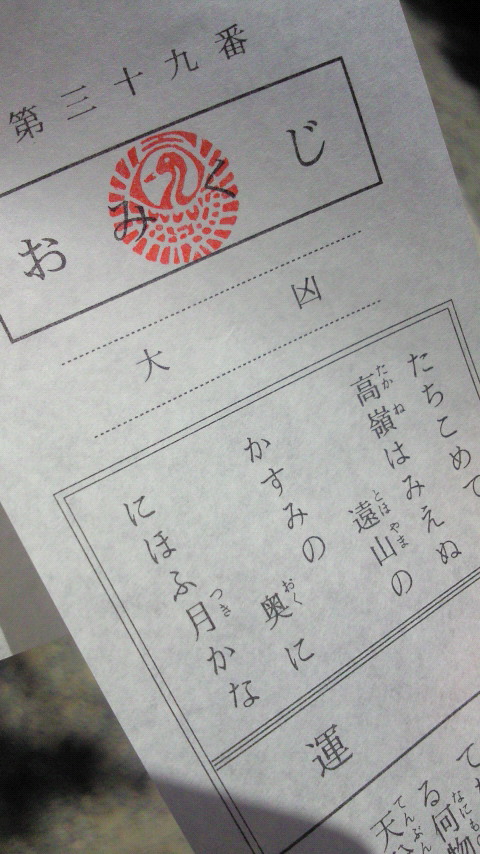 第三十九番
おみくじ
大凶
たちこめて
高嶺はみえぬ
遠山の
かすみの
奥に
にほふ月かな
運